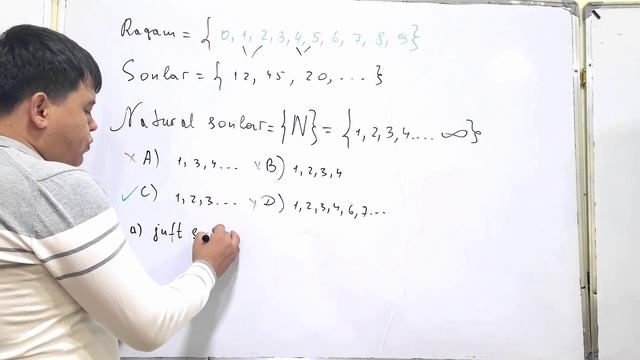 Raqam = { 0, 1, 2, 3, 4, 5, 6, 7, 8, 9}
Sonlar = { 12, 45, 20, ... }
Natural sonlar = {N} = {1, 2, 3, 4.... ∞}
x A) 1, 3, 4... x B) 1, 2, 3, 4
✓ C) 1, 2, 3... x D) 1, 2, 3, 4, 6, 7...
a) juft